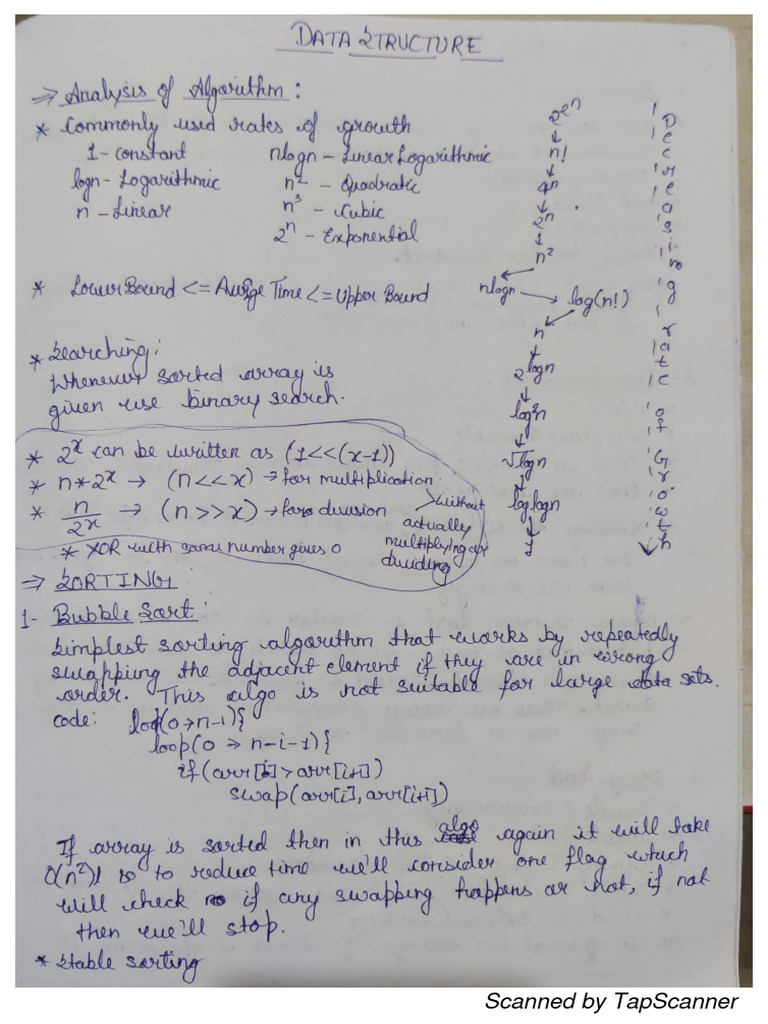 DATA STRUCTURE
⇒ Analysis of Algorithm :
* Commonly used rates of growth
1 - constant
logn - Logarithmic
n - Linear
nlogn - Linear Logarithmic
n² - Quadratic
n³ - Cubic
2ⁿ - Exponential
* Lower Bound <= Average Time <= Upper Bound
* Searching:
Whenever sorted array is
given use binary search.
* 2ˣ can be written as (1<<(x-1))
* n*2ˣ → (n<<x) → for multiplication
* n/2ˣ → (n>>x) → for division
> without
actually
multiplying or
dividing
* XOR with same number gives 0
2^2^n
↓
n!
↓
4ⁿ
↓
2ⁿ
↓
n²
↓
nlogn → log(n!)
↓
n
↓
2^logn
↓
log²n
↓
√logn
↓
loglogn
↓
1
Decreasing rate of Growth
⇒ SORTING
1- Bubble Sort :
Simplest sorting algorithm that works by repeatedly
swapping the adjacent element if they are in wrong
order. This algo is not suitable for large data sets.
code: loop(0→n-1){
loop(0 → n-i-1){
if(arr[i]>arr[i+1])
swap(arr[i],arr[i+1])
If array is sorted then in this algo again it will take
O(n²) so to reduce time we'll consider one flag which
will check if any swapping happens or not, if not
then we'll stop.
* Stable sorting
Scanned by TapScanner